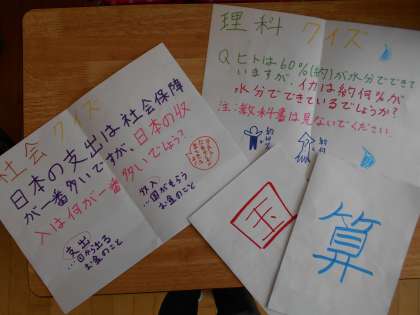 理科クイズ
Q ヒトは60%(約)が水分でできて
いますが、イカは約何%が
水分でできているでしょうか?
注:教科書は見ないでください。
社会クイズ
日本の支出は社会保障
が一番多いですが、日本の収
入は何が一番多いでしょう?
支出
…国から出る
お金のこと
収入
…国がもらう
お金のこと
国
算